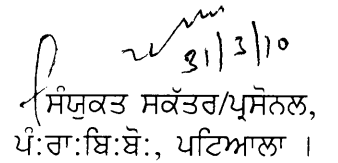 31/3/10
ਸੰਯੁਕਤ ਸਕੱਤਰ/ਪ੍ਰਸੋਨਲ,
ਪੰ:ਰਾ:ਬਿ:ਬੋ:, ਪਟਿਆਲਾ ।